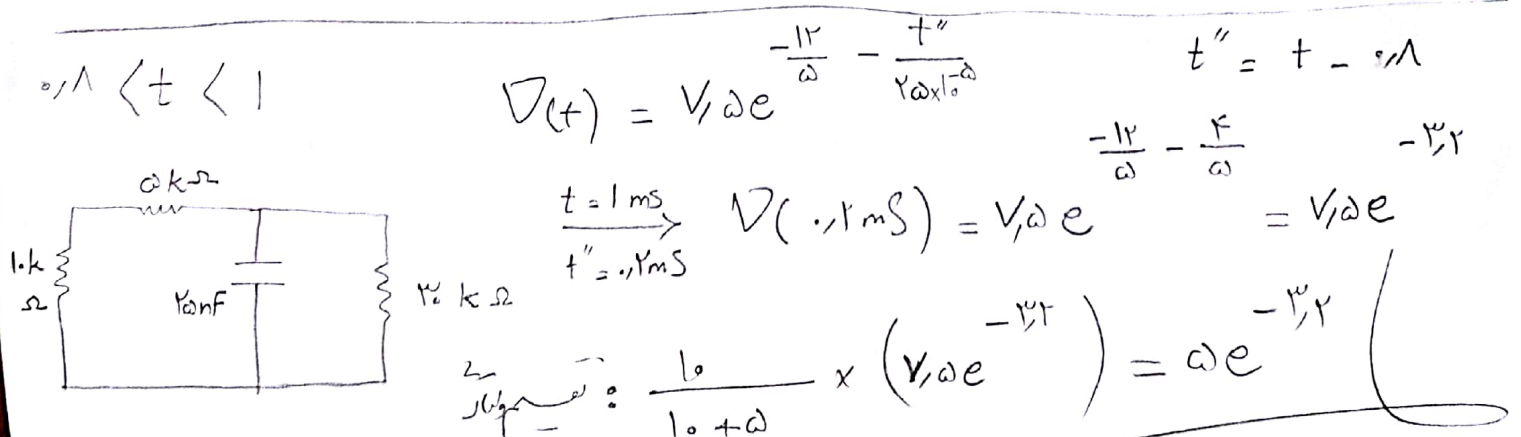 ۰,۸ < t < ۱
V(t) = ۷,۵e^(-۱۲/۵ - t″/(۲۵×۱۰^-۵))
t″ = t - ۰,۸
۵ kΩ
۱۰k Ω
۲۵nF
۳۰ kΩ
t = ۱ ms
t″ = ۰,۲ms
V(۰,۲ms) = ۷,۵e^(-۱۲/۵ - ۴/۵) = ۷,۵e^-۳,۲
تقسیم ولتاژ : ۱۰/(۱۰+۵) × (۷,۵e^-۳,۲) = ۵e^-۳,۲